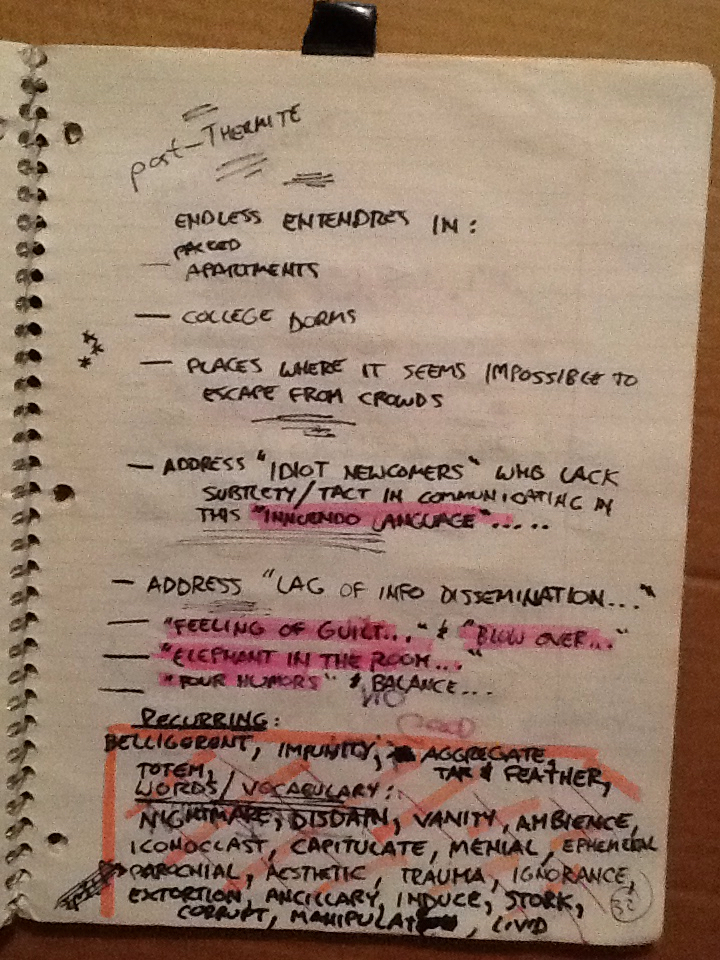 post-THERMITE
ENDLESS ENTENDRES IN:
PACKED
— APARTMENTS
— COLLEGE DORMS
— PLACES WHERE IT SEEMS IMPOSSIBLE TO
ESCAPE FROM CROWDS
— ADDRESS "IDIOT NEWCOMERS" WHO LACK
SUBTLETY/TACT IN COMMUNICATING IN
THIS "INNUENDO LANGUAGE".....
— ADDRESS "LAG OF INFO DISSEMINATION..."
— "FEELING OF GUILT..." & "BLOW OVER..."
— "ELEPHANT IN THE ROOM..."
— "FOUR HUMORS" & BALANCE...
RECURRING:
BELLIGERENT, IMPUNITY, AGGREGATE,
TOTEM, TAR & FEATHER,
WORDS/VOCABULARY:
NIGHTMARE, DISDAIN, VANITY, AMBIENCE,
ICONOCLAST, CAPITULATE, MENIAL, EPHEMERAL
PAROCHIAL, AESTHETIC, TRAUMA, IGNORANCE,
EXTORTION, ANCILLARY, INDUCE, STORK,
CORRUPT, MANIPULAT, LIVID